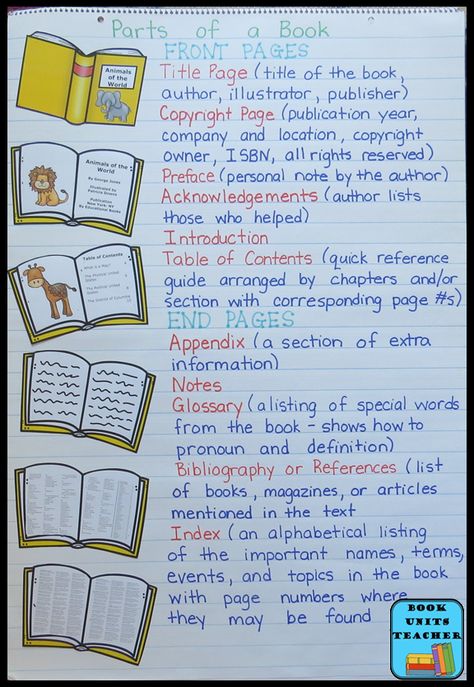 Parts of a Book
FRONT PAGES
Title Page (title of the book,
author, illustrator, publisher)
Copyright Page (publication year,
company and location, copyright
owner, ISBN, all rights reserved)
Preface (personal note by the author)
Acknowledgements (author lists
those who helped)
Introduction
Table of Contents (quick reference
guide arranged by chapters and/or
section with corresponding page #s)
END PAGES
Appendix (a section of extra
information)
Notes
Glossary (a listing of special words
from the book - shows how to
pronoun and definition)
Bibliography or References (list
of books, magazines, or articles
mentioned in the text
Index (an alphabetical listing
of the important names, terms,
events, and topics in the book
with page numbers where
they may be found
Animals
of the
World
Animals of the
World
By George Jones
Illustrated by
Patricia
Publication
New York, NY
By Educational Books
Table of Contents
What is a Map?
The Physical United
States
The Political United
States
The District of Columbia
BOOK
UNITS
TEACHER